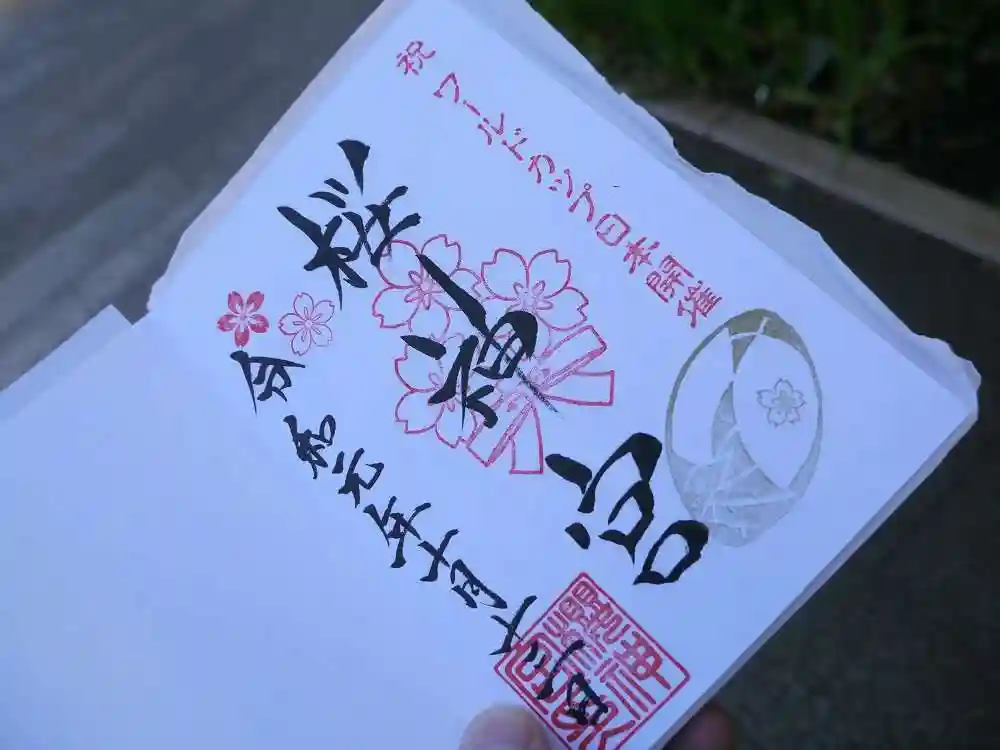 祝 ワールドカップ日本開催
桜神宮
令和元年十月十 日